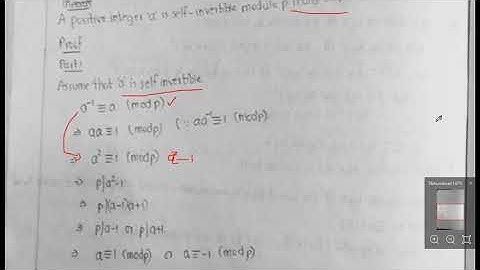 Theorem
A positive integer 'a' is self-invertible modulo p
Proof
Part 1
Assume that 'a' is self invertible
a⁻¹ ≡ a (mod p) ✓
⇒ aa ≡ 1 (mod p) (∵ aa⁻¹ ≡ 1 (mod p)
⇒ a² ≡ 1 (mod p) a²-1
⇒ p|a²-1
⇒ p|(a-1)(a+1)
⇒ p|a-1 or p|a+1
⇒ a ≡ 1 (mod p) or a ≡ -1 (mod p)